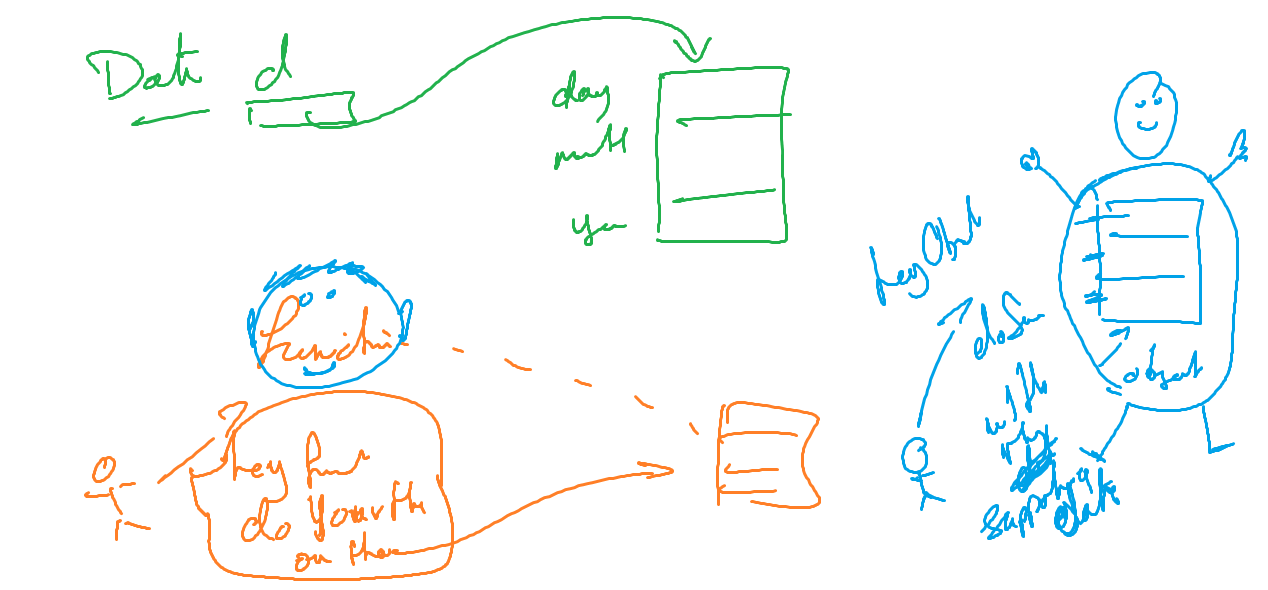 Date d
day
month
year
function
hey func
do your thing
on this
hey Obj
do Som
with
my
supporting
data
object